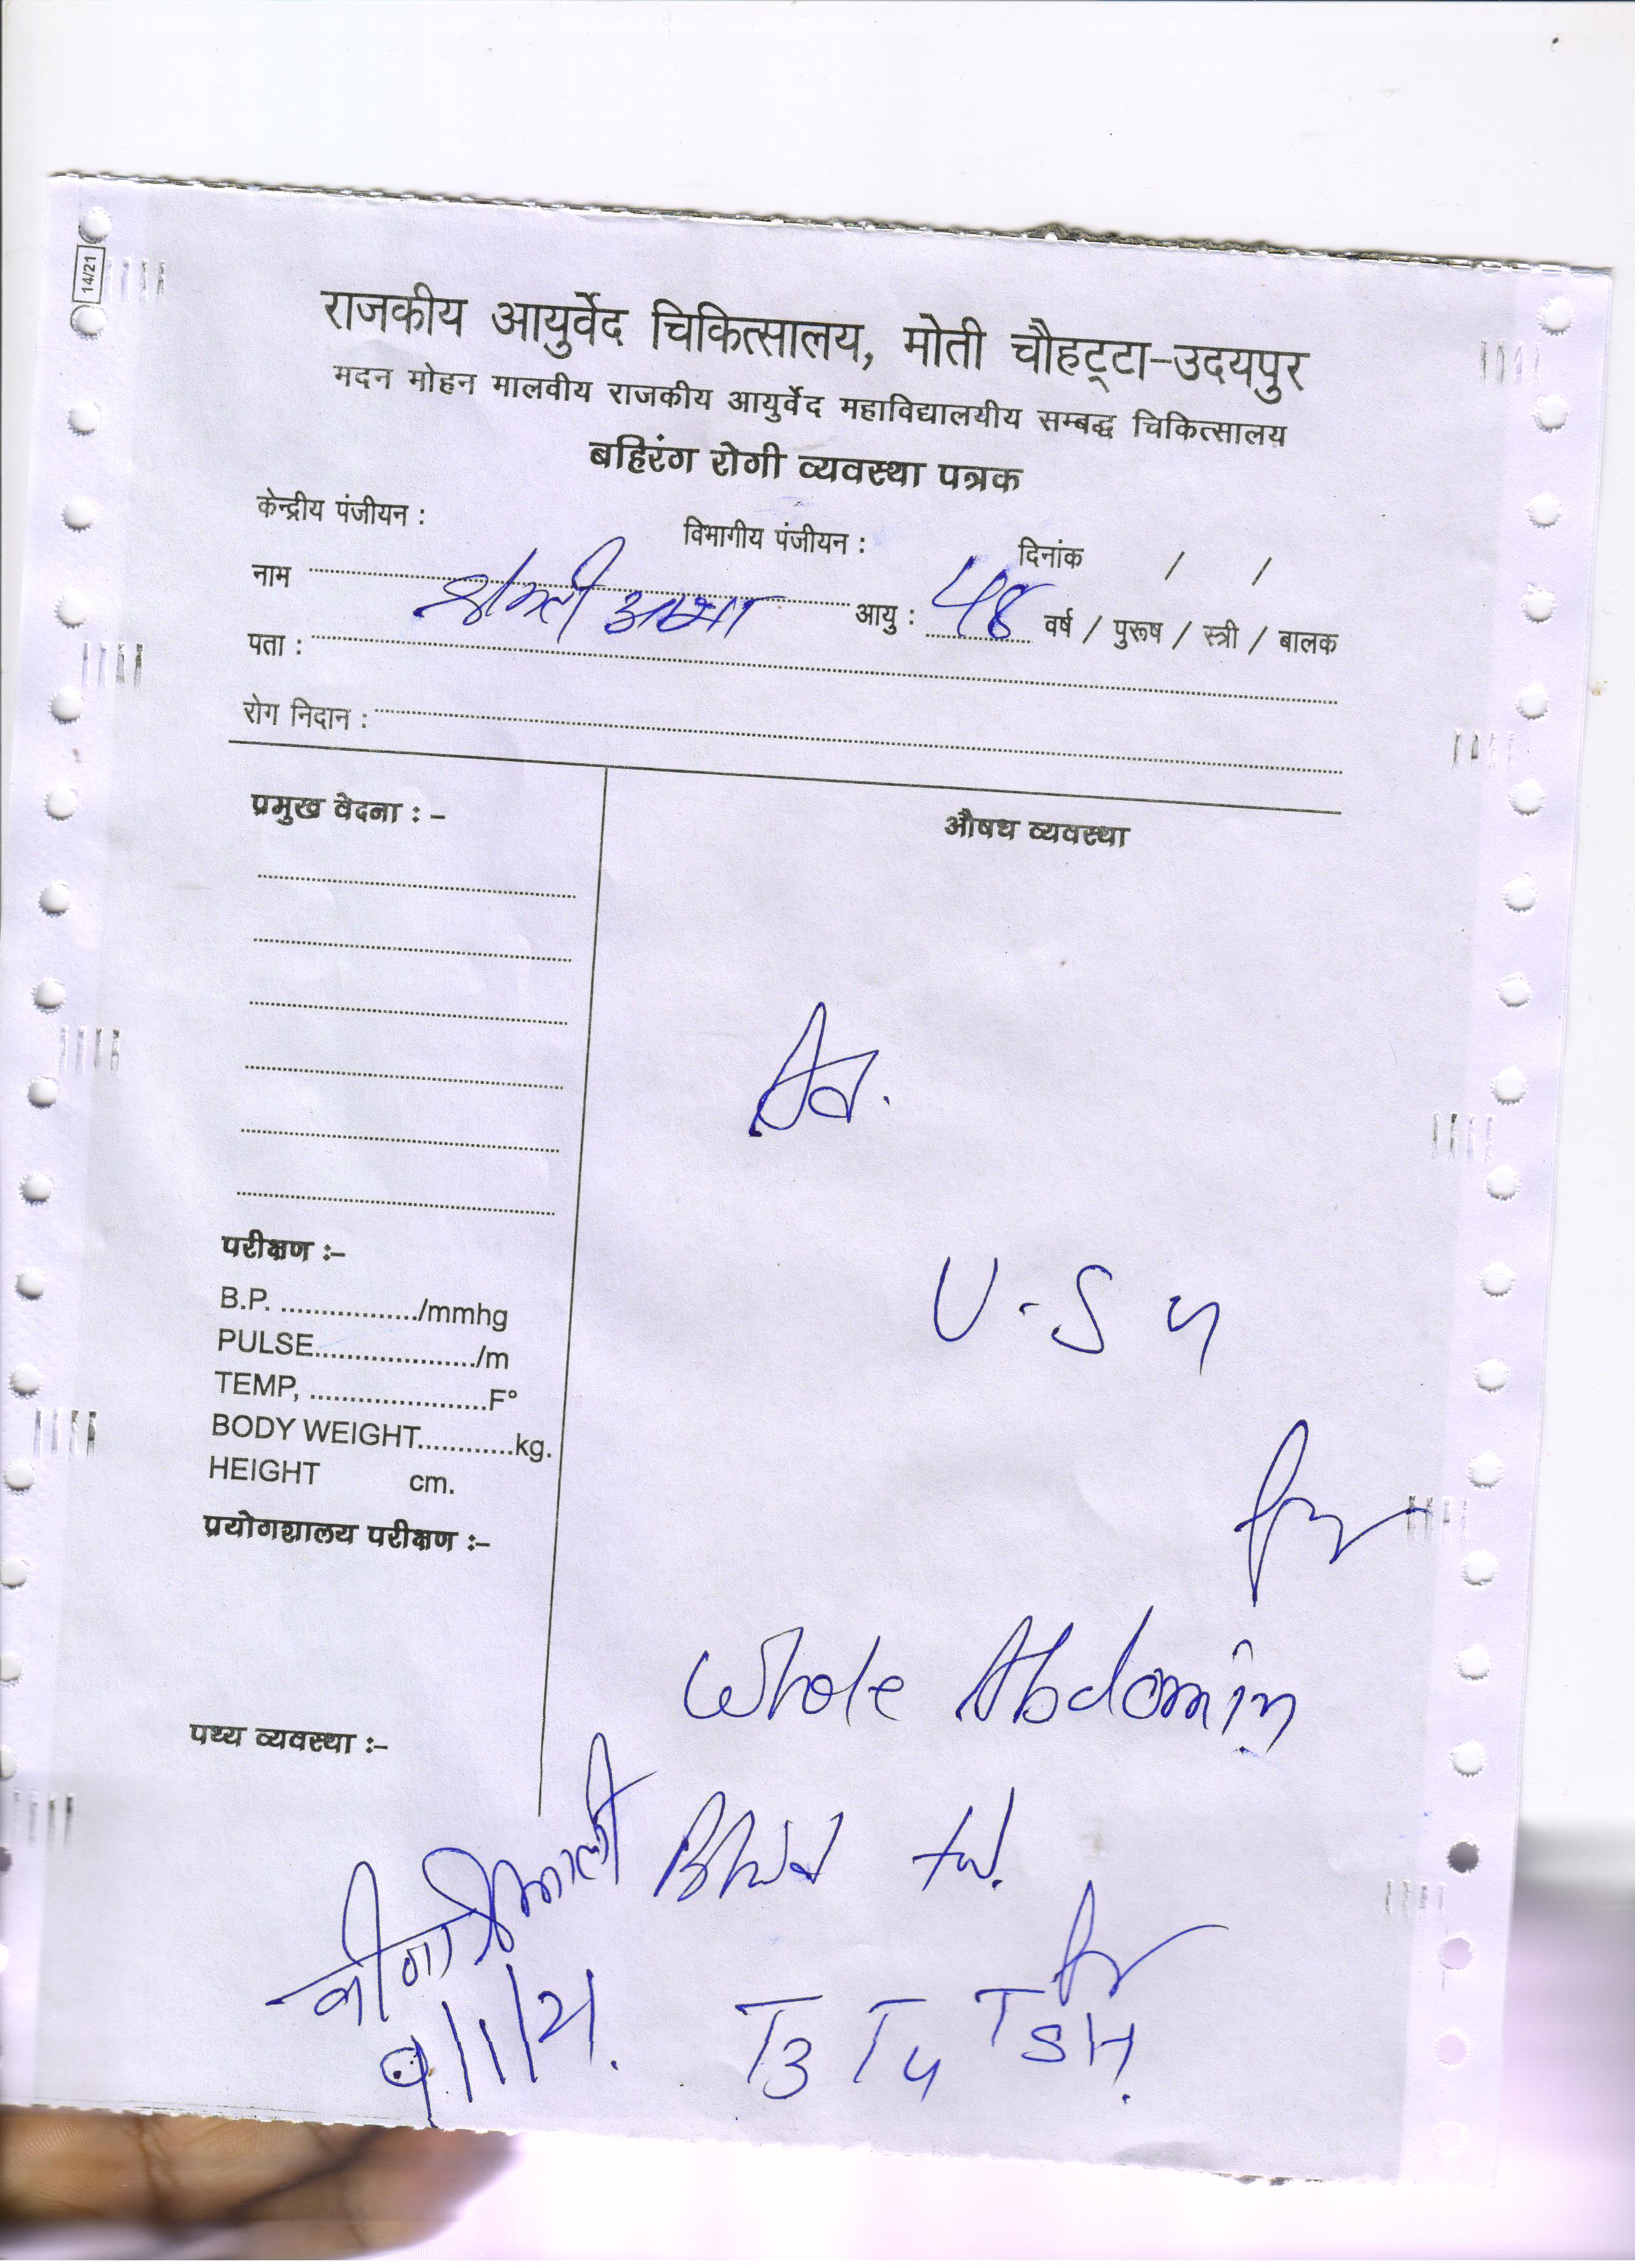 14/21
राजकीय आयुर्वेद चिकित्सालय, मोती चौहट्टा-उदयपुर
मदन मोहन मालवीय राजकीय आयुर्वेद महाविद्यालयीय सम्बद्ध चिकित्सालय
बहिरंग रोगी व्यवस्था पत्रक
केन्द्रीय पंजीयन : विभागीय पंजीयन : दिनांक / /
नाम आयु : 48 वर्ष / पुरूष / स्त्री / बालक
पता :
रोग निदान :
प्रमुख वेदना : - औषध व्यवस्था
Ad.
U-S
परीक्षण :-
B.P. ................./mmhg
PULSE..................../m
TEMP, ......................F°
BODY WEIGHT............kg.
HEIGHT cm.
प्रयोगशालय परीक्षण :-
for
Whole Abdomin
पथ्य व्यवस्था :-
for
T3 T4 TSH.